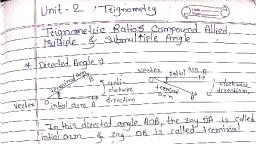 Unit - 2 : Trignometry
Trignometric Ratios Compound Allied,
Multiple & Submultiple Angle
* Directed Angle →
vertex initial arm A
terminal arm
anti-
clockwise
direction
vertex O initial arm A
terminal
arm B
clockwise
direction
In this directed angle AOB, the ray OA is called
initial arm & ray OB is called terminal